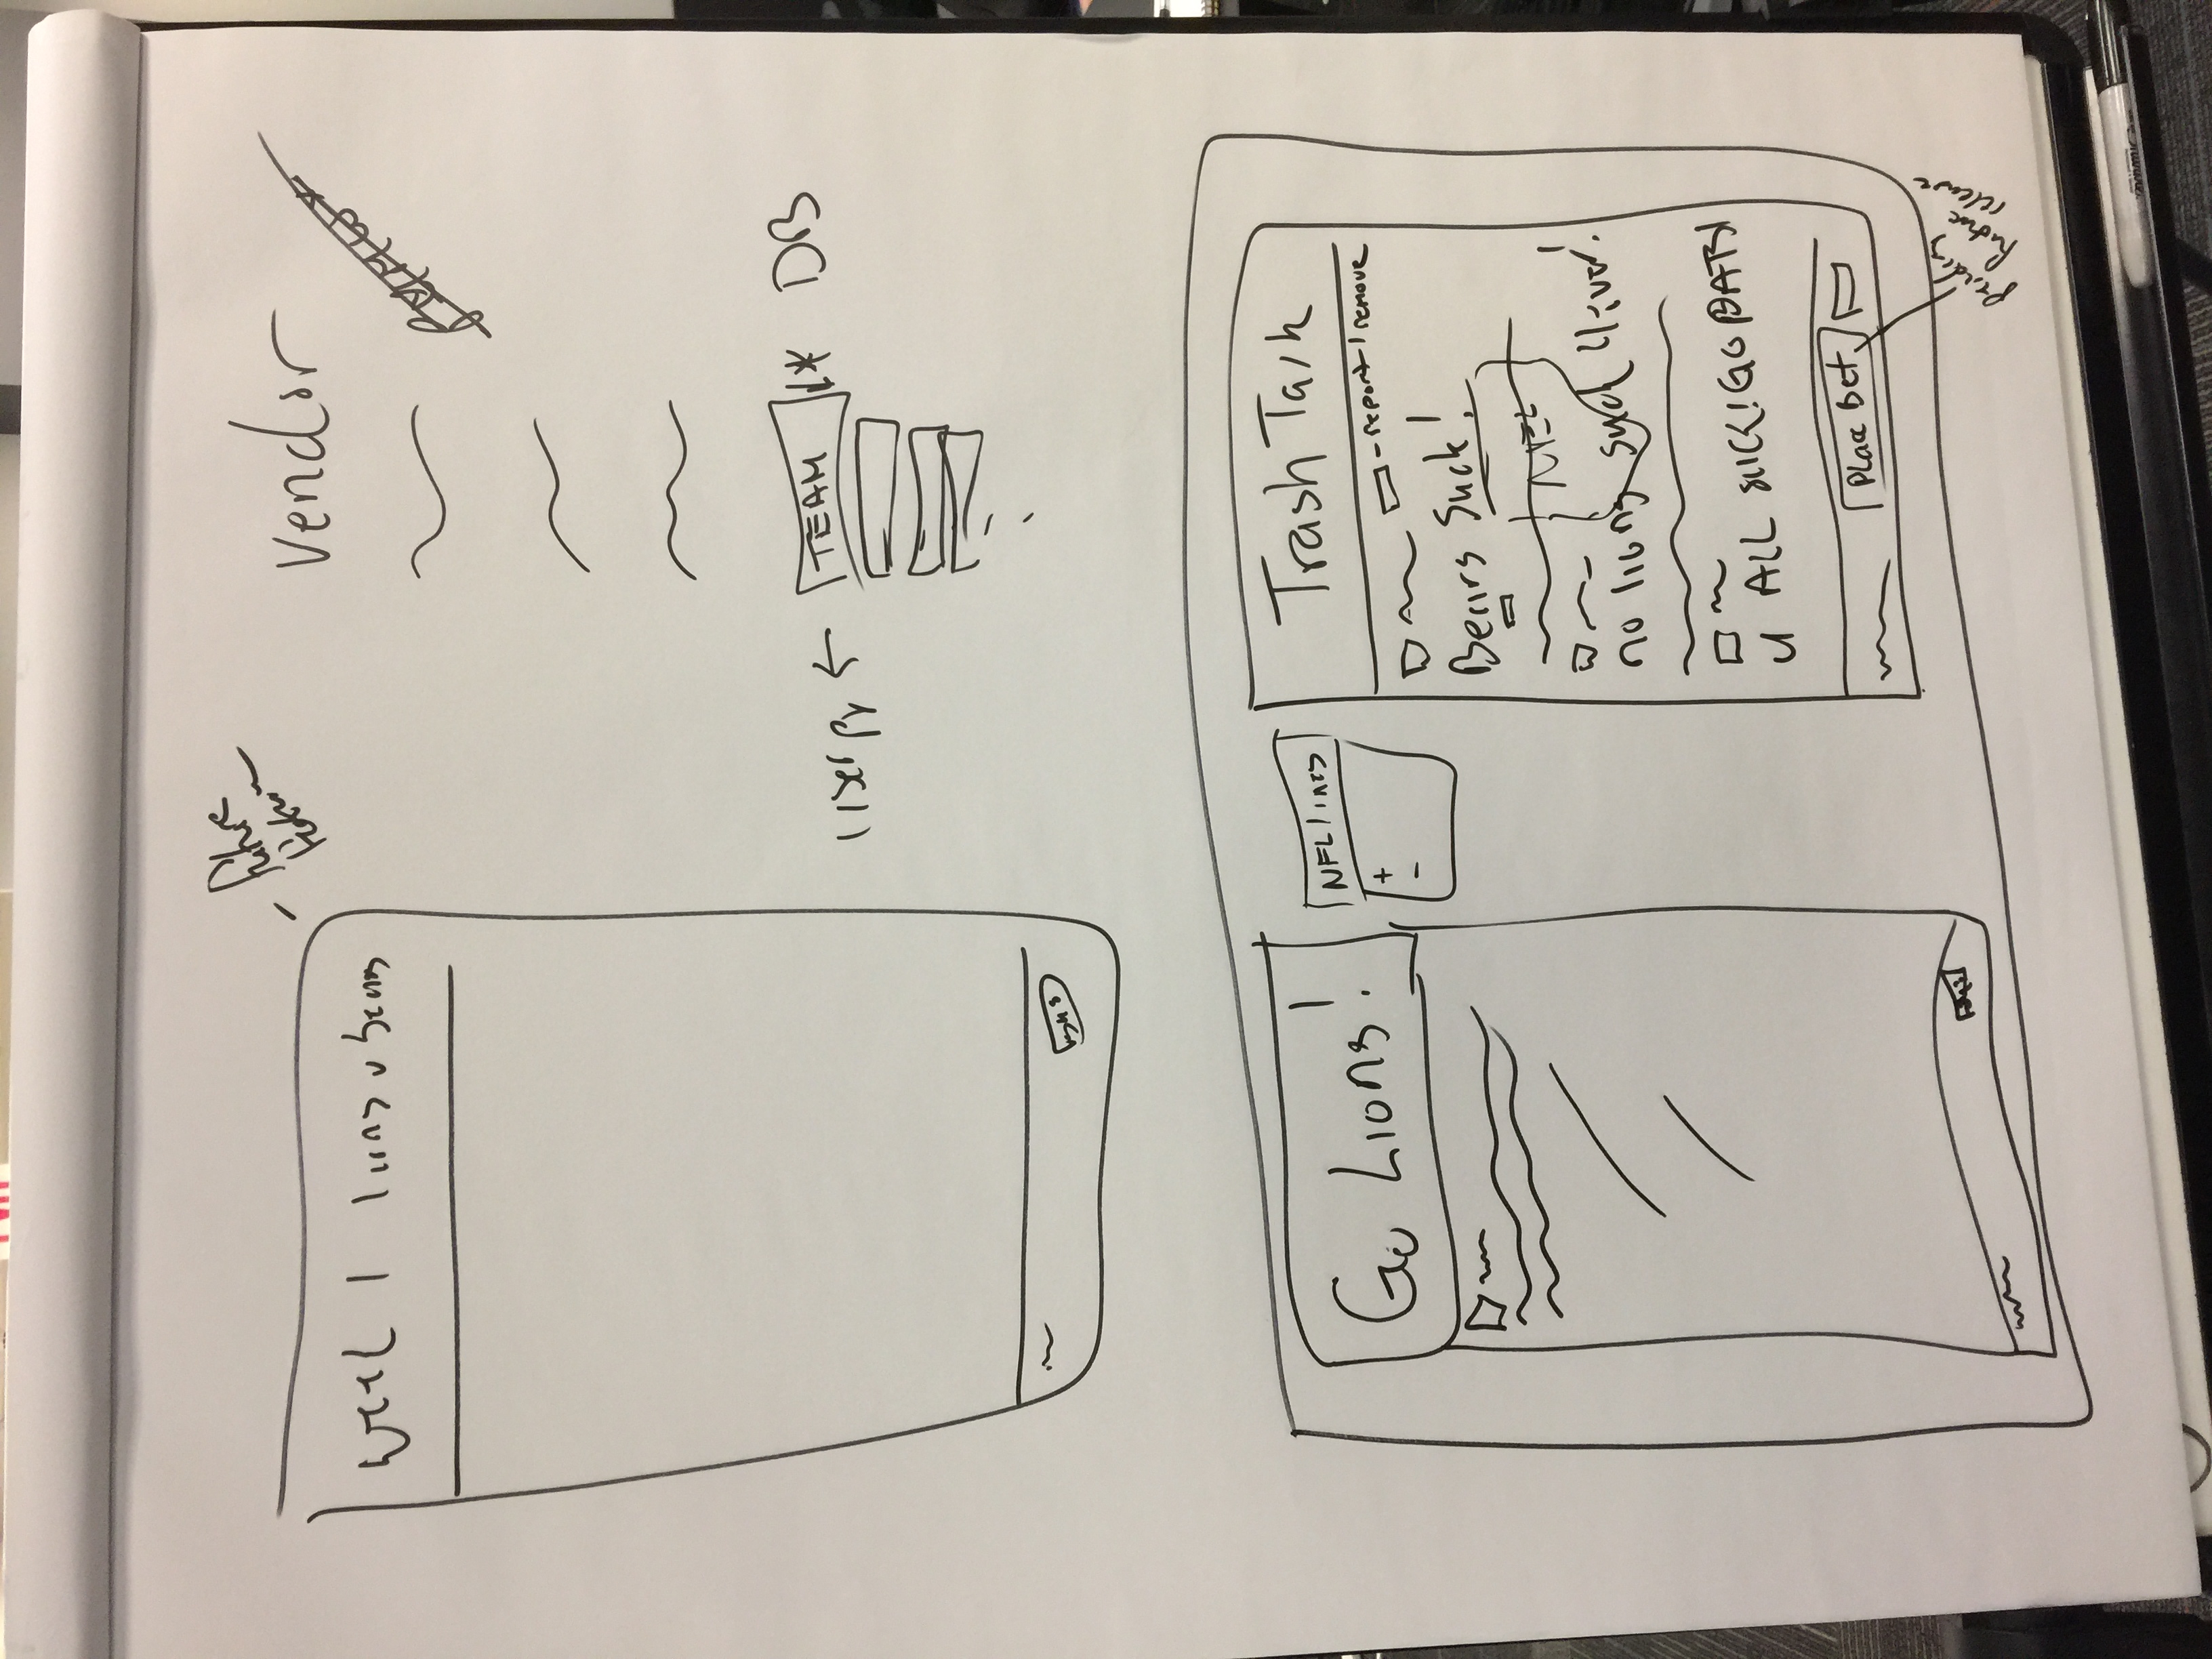 future
vendor
week 1 lions v bears
TEAM
DB
user pr
Go Lions!
NFL lines
+
-
Trash Talk
- report / remove
Bears Suck!
NFL
no lions suck 4ever!
U ALL SUCK! GO PATS!
Place Bet
pending
future
release